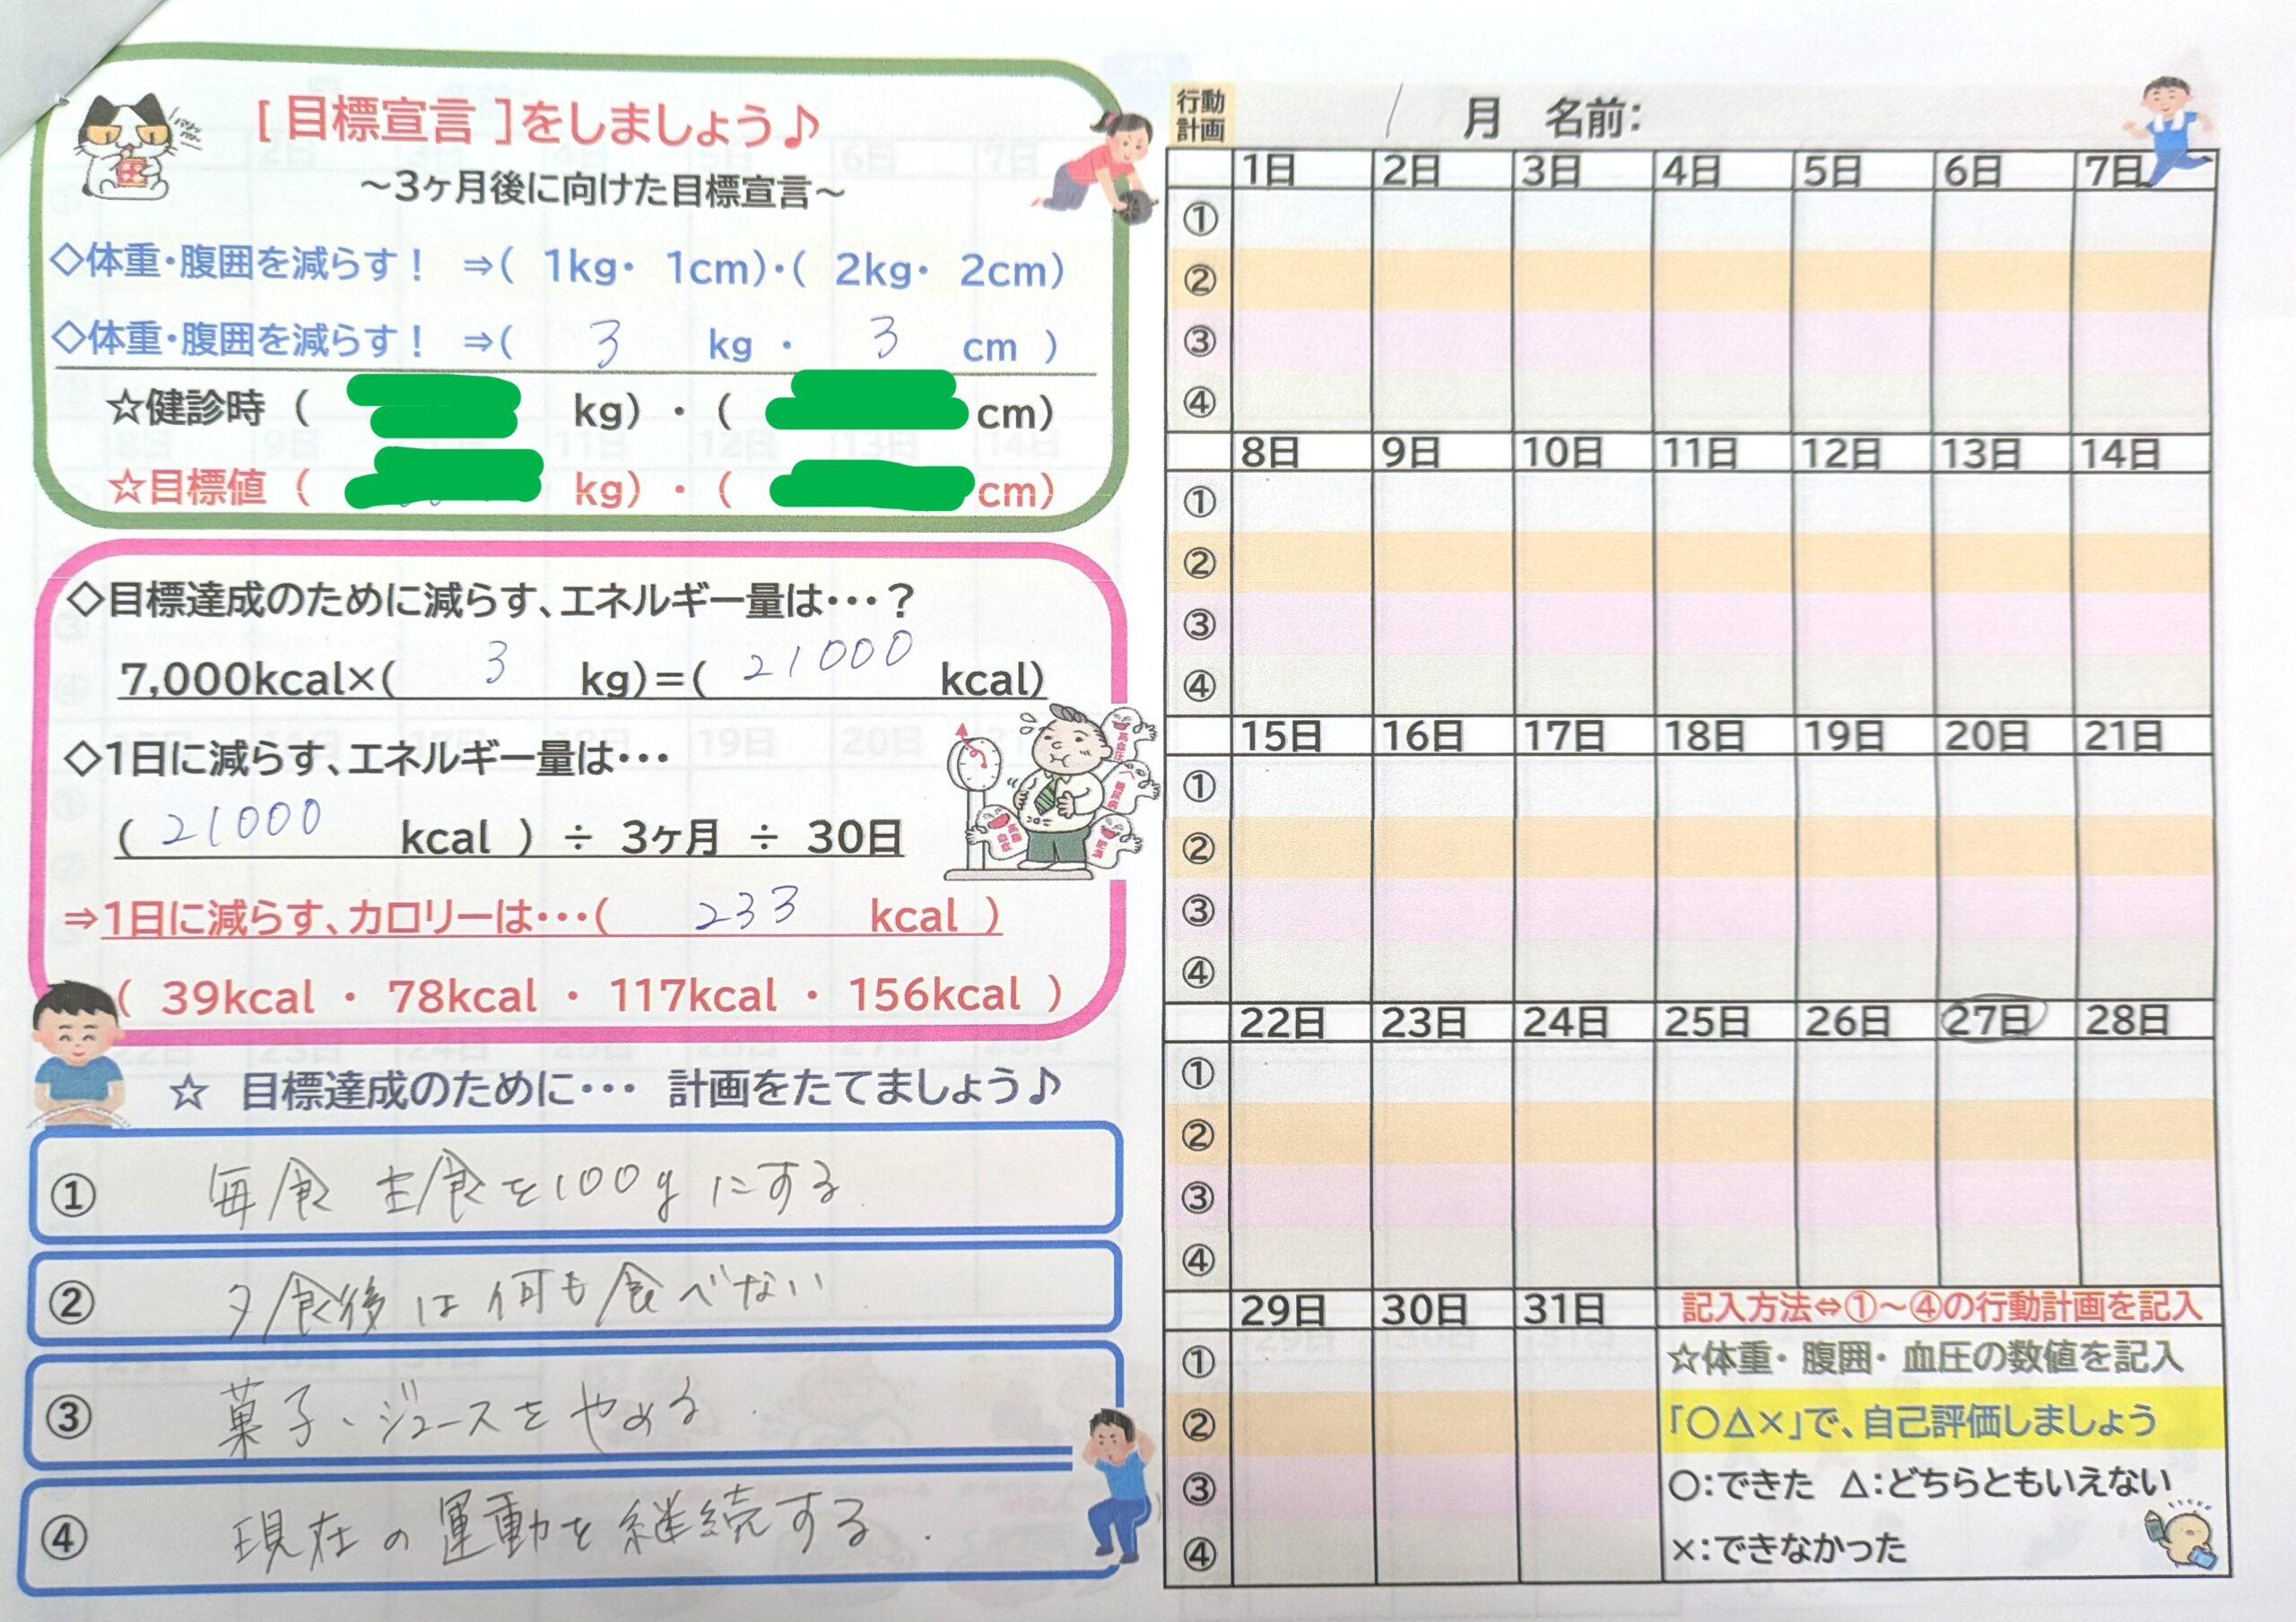 [ 目標宣言 ]をしましょう♪
~3ヶ月後に向けた目標宣言~
◇体重・腹囲を減らす! ⇒( 1kg・ 1cm)・( 2kg・ 2cm)
◇体重・腹囲を減らす! ⇒( 3 kg ・ 3 cm )
☆健診時 ( kg) ・ ( cm)
☆目標値 ( kg) ・ ( cm)
◇目標達成のために減らす、エネルギー量は・・・?
7,000kcal×( 3 kg)=( 21000 kcal)
◇1日に減らす、エネルギー量は・・・
( 21000 kcal ) ÷ 3ヶ月 ÷ 30日
⇒1日に減らす、カロリーは・・・( 233 kcal )
( 39kcal ・ 78kcal ・ 117kcal ・ 156kcal )
☆ 目標達成のために・・・ 計画をたてましょう♪
① 毎食 主食を100gにする
② 夕食後は何も食べない
③ 菓子、ジュースをやめる
④ 現在の運動を継続する.
行動
計画
1 月 名前:
1日 2日 3日 4日 5日 6日 7日
①
②
③
④
8日 9日 10日 11日 12日 13日 14日
①
②
③
④
15日 16日 17日 18日 19日 20日 21日
①
②
③
④
22日 23日 24日 25日 26日 27日 28日
①
②
③
④
29日 30日 31日 記入方法⇔①~④の行動計画を記入
① ☆体重・腹囲・血圧の数値を記入
② 「〇△×」で、自己評価しましょう
③ 〇:できた △:どちらともいえない
④ ×:できなかった